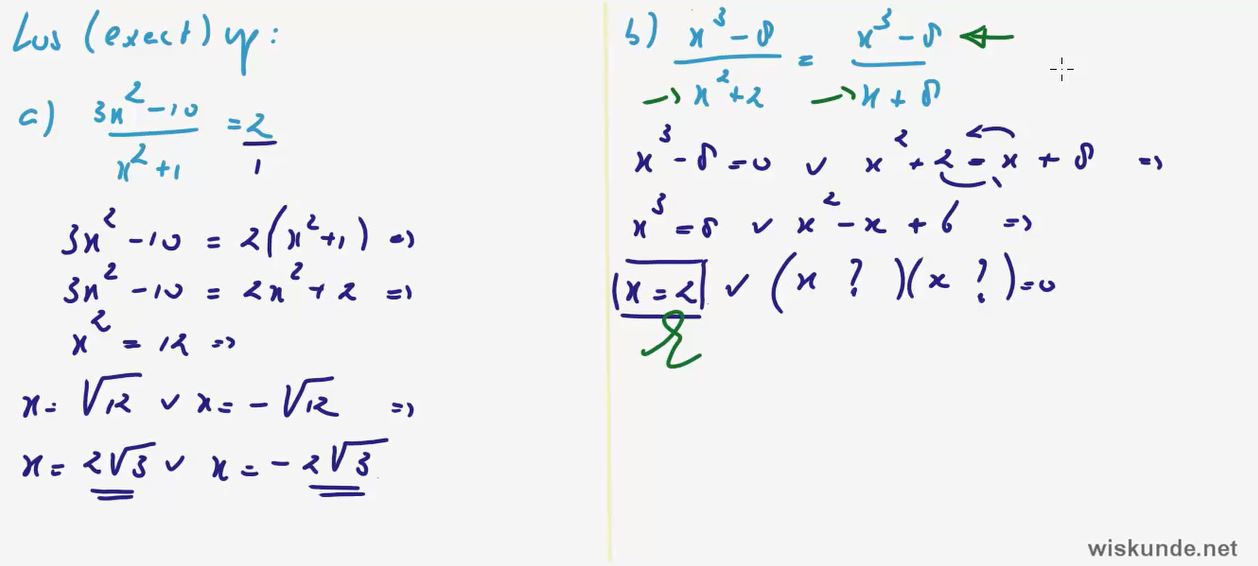 Los (exact) op:
a) (3x² - 10)/(x² + 1) = 2/1
3x² - 10 = 2(x² + 1) =>
3x² - 10 = 2x² + 2 =>
x² = 12 =>
x = √12 ∨ x = - √12 =>
x = 2√3 ∨ x = - 2√3
b) (x³ - 8)/(x² + 2) = (x³ - 8)/(x + 8)
x³ - 8 = 0 ∨ x² + 2 = x + 8 =>
x³ = 8 ∨ x² - x + 6 =>
x = 2 ∨ (x ? )(x ? ) = 0
wiskunde.net